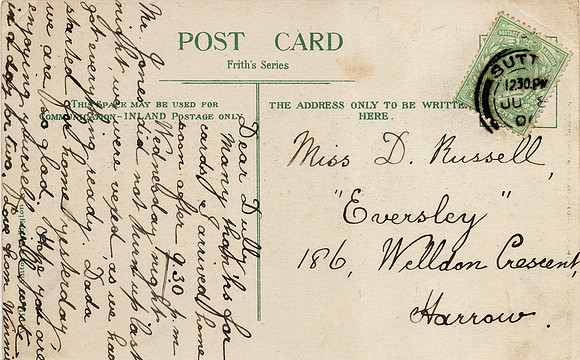 POST CARD
Frith's Series
THIS SPACE MAY BE USED FOR
COMMUNICATION—INLAND POSTAGE ONLY.
THE ADDRESS ONLY TO BE WRITTEN
HERE.
SUTT
12.30 PM
JU
Miss D. Russell,
"Eversley"
186, Welldon Crescent,
Harrow.
Dear Dully,
Many thanks for
cards. I arrived home
soon after 9.30 p.m.
Wednesday night.
Mr. Jones did not turn up last
night, we were vexed, as we had
got everything ready. Dada
started for home yesterday
we are so glad. Hope you are
enjoying yourself. Will write
in a day or two. Love from Winnie